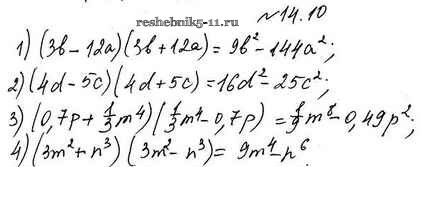 reshebnik5-11.ru
№14.10
1) (3b - 12a)(3b + 12a) = 9b² - 144a²;
2) (4d - 5c)(4d + 5c) = 16d² - 25c²;
3) (0,7p + 1/3 m⁴)(1/3 m⁴ - 0,7p) = 1/9 m⁸ - 0,49p²;
4) (3m² + n³)(3m² - n³) = 9m⁴ - n⁶.